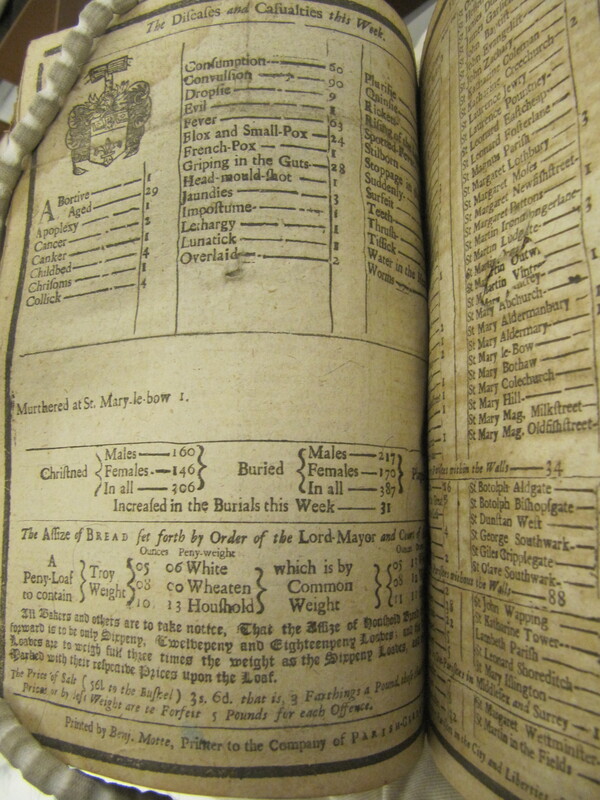 The Diseases and Casualties this Week.
Abortive 1
Aged 29
Apoplexy 1
Cancer 2
Canker 1
Childbed 4
Chrisoms 1
Collick 4
Consumption 60
Convulsion 90
Dropsie 9
Evil 1
Fever 63
Flox and Small-Pox 24
French-Pox 1
Griping in the Guts 28
Head-mould-shot 1
Jaundies 3
Impostume 1
Lethargy 1
Lunatick 1
Overlaid 2
Plurisie
Quinsie
Rickets
Rising of the
Spotted
Stilborn
Stoppage
Suddenly
Surfeit
Teeth
Thrush
Tissick
Water in the
Worms
Murthered at St. Mary-le-bow 1.
Christned
Males 160
Females 146
In all 306
Buried
Males 217
Females 170
In all 387
Increased in the Burials this Week 31
The Assize of BREAD set forth by Order of the Lord-Mayor and Court of
Ounces Peny-weight
A Peny-Loaf to contain
Troy Weight
05 06 White
08 00 Wheaten
10 13 Houshold
which is by Common Weight
All Bakers and others are to take notice, That the Assize of Houshold
forward is to be only Sixpeny, Twelvepeny and Eighteenpeny Loaves: and the
Loaves are to weigh full three times the weight as the Sixpeny Loaves, and
Marked with their respective Prices upon the Loaf.
The Price of Sale (56l. to the Bushel) 3s. 6d. that is, 3 Farthings a Pound,
Prices or by less Weight are to Forfeit 5 Pounds for each Offence.
Printed by Benj. Motte, Printer to the Company of
John Zachary
Katharine Coleman
Katharine Creechurch
St Lawrence Jewry
St Lawrence Pountney
St Leonard Eastcheap
St Leonard Fosterlane
St Magnus Parish
St Margaret Lothbury
St Margaret Moses
St Margaret Newfishstreet
St Margaret Pattons
St Martin Ironmongerlane
St Martin Ludgate
St Mary Abchurch
St Mary Aldermanbury
St Mary Aldermary
St Mary le-Bow
St Mary Bothaw
St Mary Colechurch
St Mary Hill
St Mary Mag. Milkstreet
St Mary Mag. Oldfishstreet
within the Walls 34
St Botolph Aldgate
St Botolph Bishopsgate
St Dunstan West
St George Southwark
St Giles Cripplegate
St Olave Southwark
without the Walls 88
St John Wapping
St Katherine Tower
Lambeth Parish
St Leonard Shoreditch
St Mary Islington
in Middlesex and Surrey
St Margaret Westminster
St Martin in the Fields
in the City and Liberties